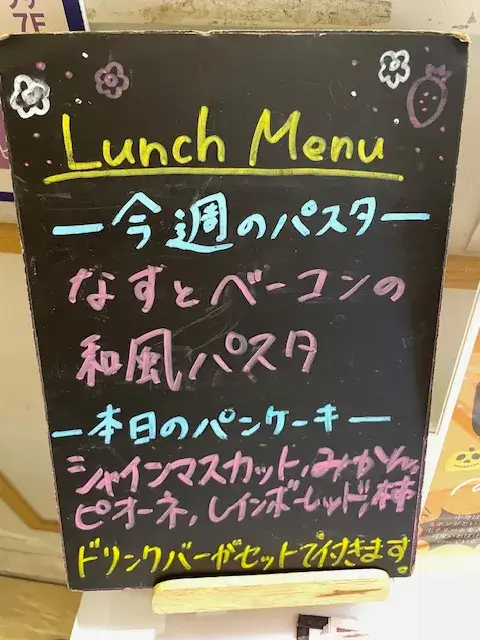 7F
Lunch Menu
ー今週のパスター
なすとベーコンの
和風パスタ
ー本日のパンケーキー
シャインマスカット,みかん,
ピオーネ,レインボーレッド,柿
ドリンクバーがセットで付きます。